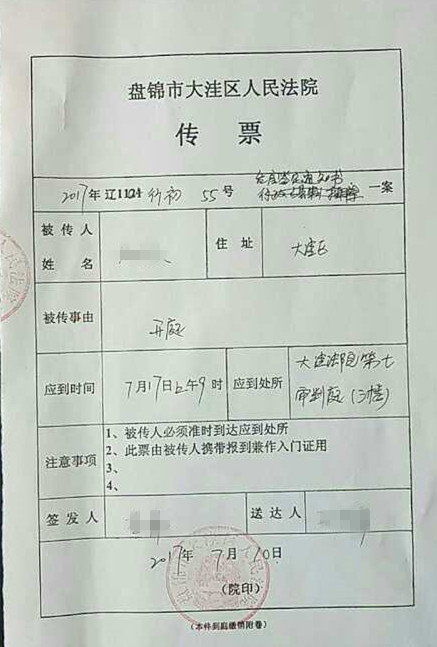 盘锦市大洼区人民法院
传 票
2017年 辽1121 行初 55号 一案
被传人
姓 名
住 址
大洼区
被传事由
开庭
应到时间
7月17日上午9时
应到处所
大洼法院第七
审判庭(3楼)
注意事项
1、被传人必须准时到达应到处所
2、此票由被传人携带报到兼作入门证用
3、
4、
签 发 人
送 达 人
2017年 7月 10日
(院印)
(本件到庭缴销附卷)